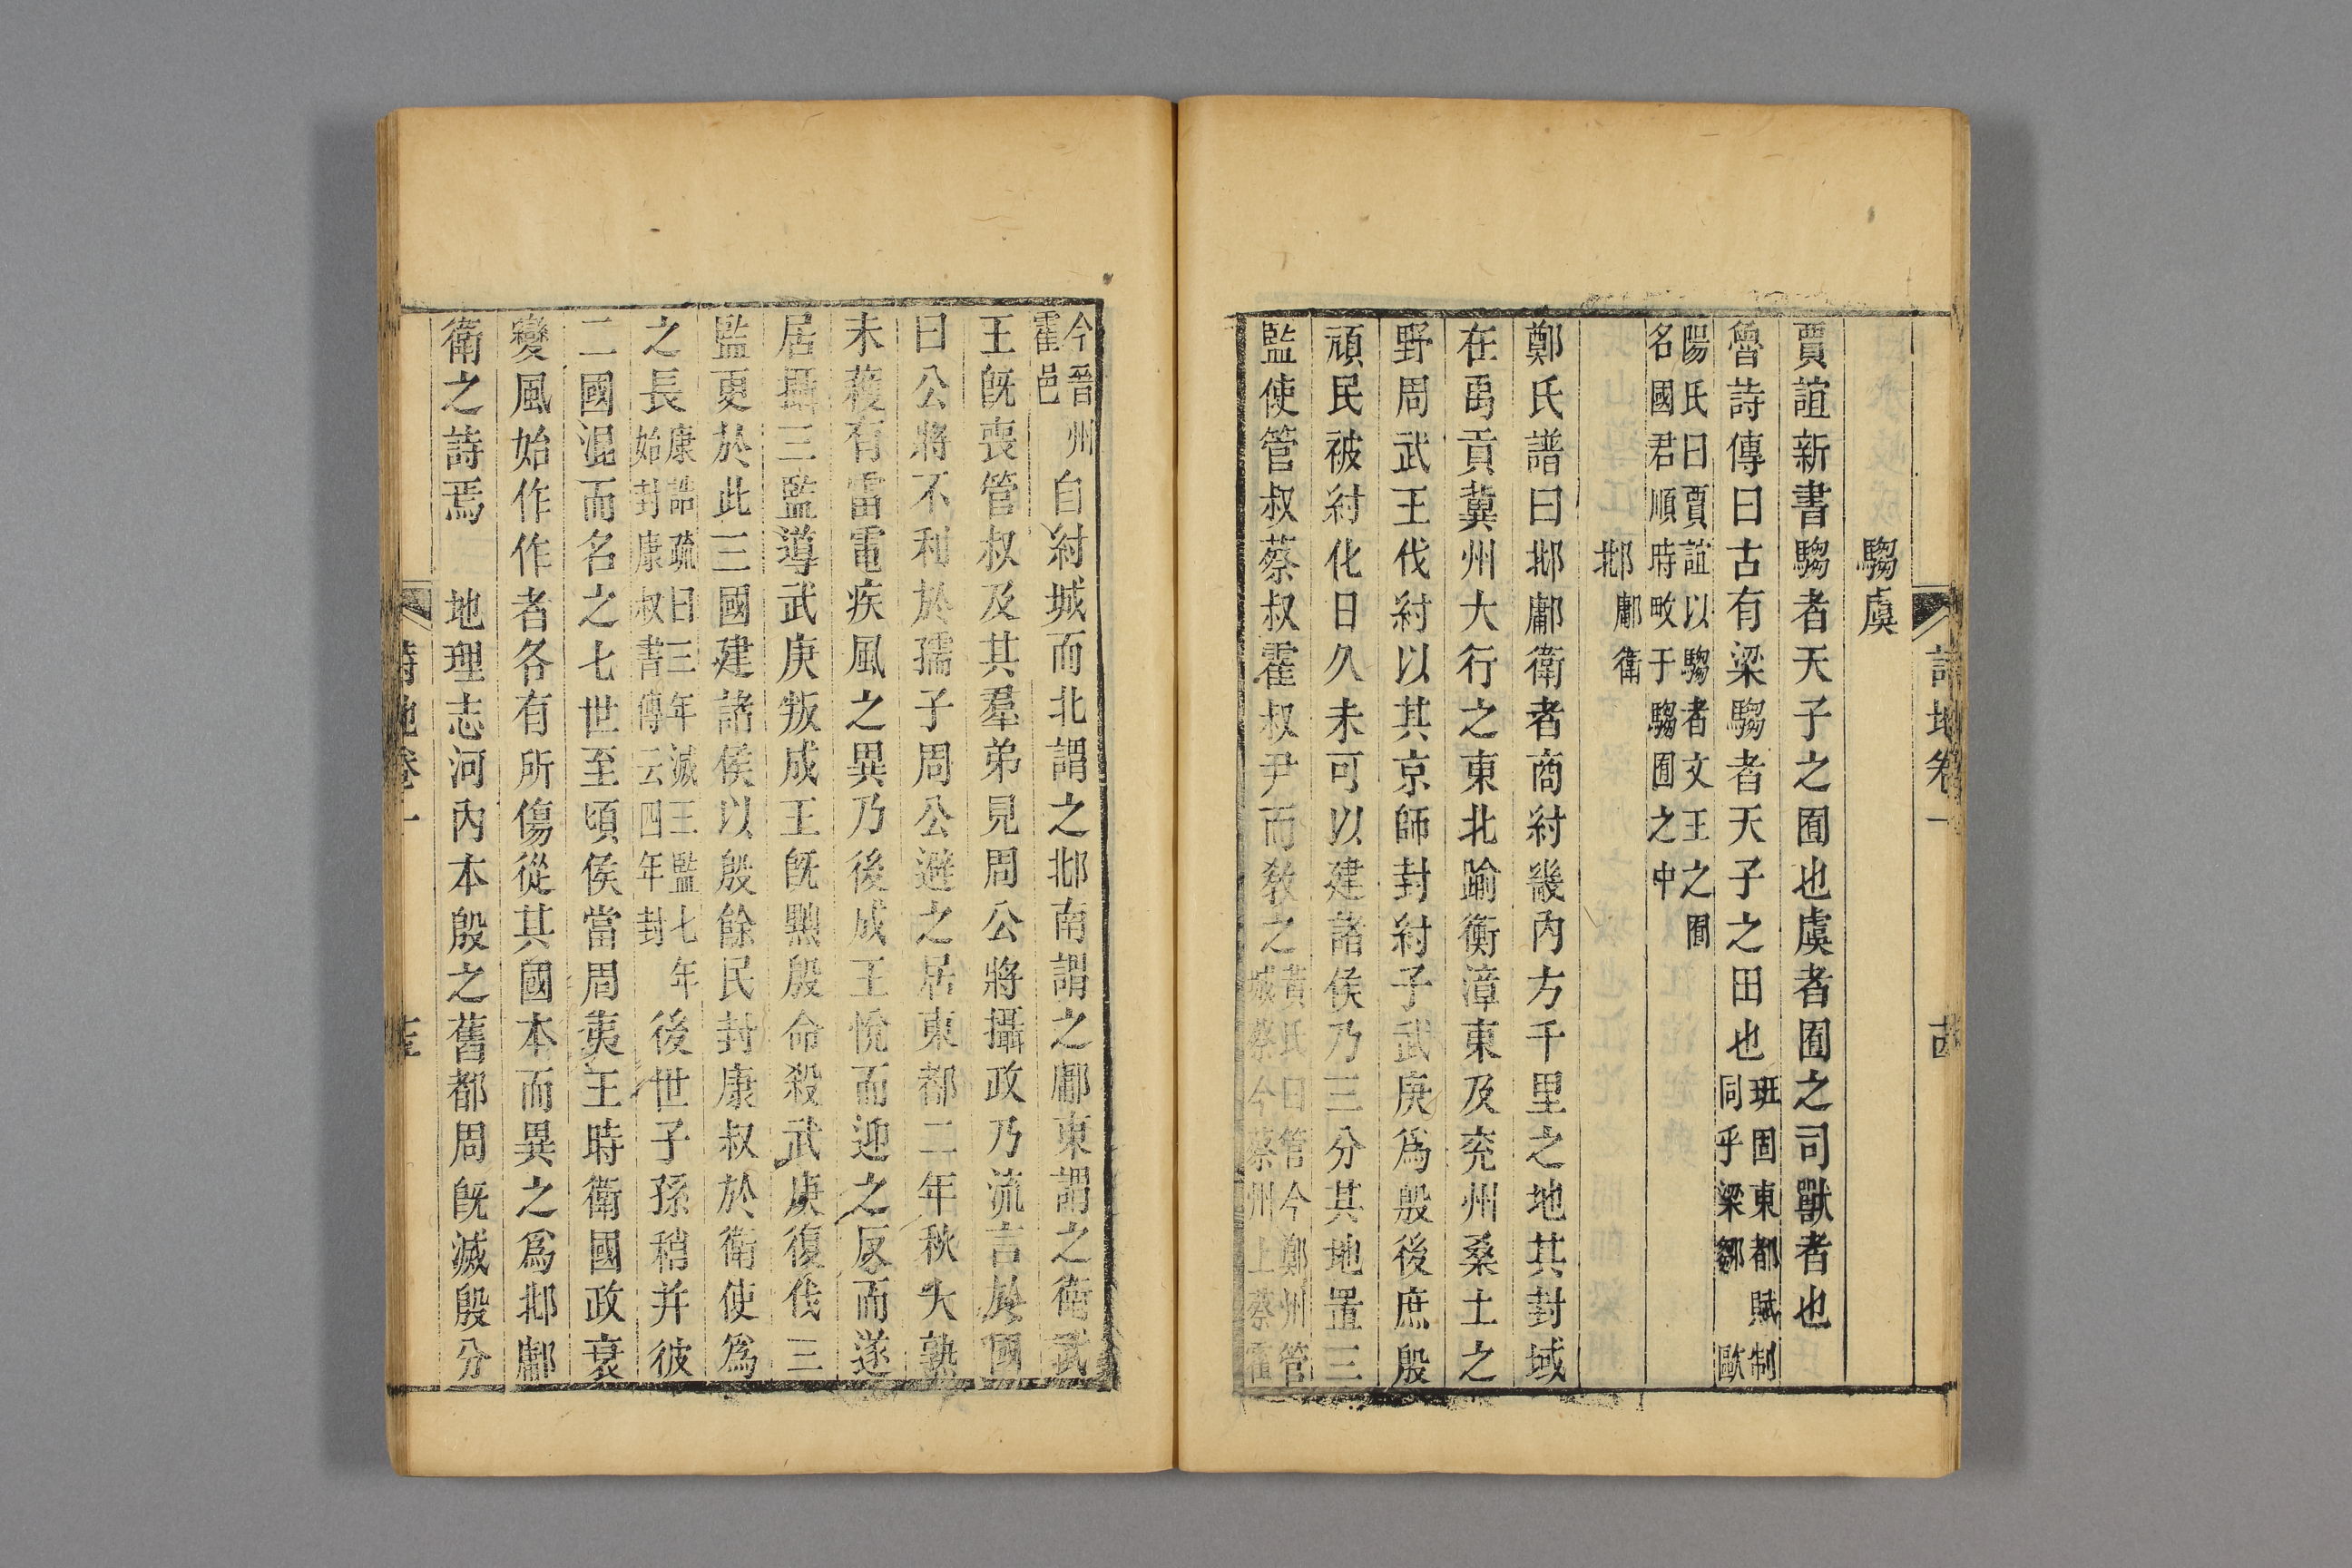 詩地卷一
騶虞
賈誼新書騶者天子之囿也虞者囿之司獸者也
魯詩傳曰古有梁騶者天子之田也班固東都賦制同乎梁鄒歐
陽氏曰賈誼以騶者文王之囿名國君順時畋于騶囿之中
邶鄘衛
鄭氏譜曰邶鄘衛者商紂畿內方千里之地其封域
在禹貢冀州大行之東北踰衡漳東及兖州桑土之
野周武王伐紂以其京師封紂子武庚爲殷後庶殷
頑民被紂化日久未可以建諸侯乃三分其地置三
監使管叔蔡叔霍叔尹而敎之黃氏曰管今鄭州管城蔡今蔡州上蔡霍
今晉州霍邑自紂城而北謂之邶南謂之鄘東謂之衛武
王旣喪管叔及其羣弟見周公將攝政乃流言於國
曰公將不利於孺子周公避之居東都二年秋大孰
未穫有雷電疾風之異乃後成王悅而迎之反而遂
居攝三監導武庚叛成王旣黜殷命殺武庚復伐三
監更於此三國建諸侯以殷餘民封康叔於衛使爲
之長康誥疏曰三年滅三監七年始封康叔書傳云四年封後世子孫稍并彼
二國混而名之七世至頃侯當周夷王時衛國政衰
變風始作作者各有所傷從其國本而異之爲邶鄘
衛之詩焉　地理志河內本殷之舊都周旣滅殷分
詩地卷一